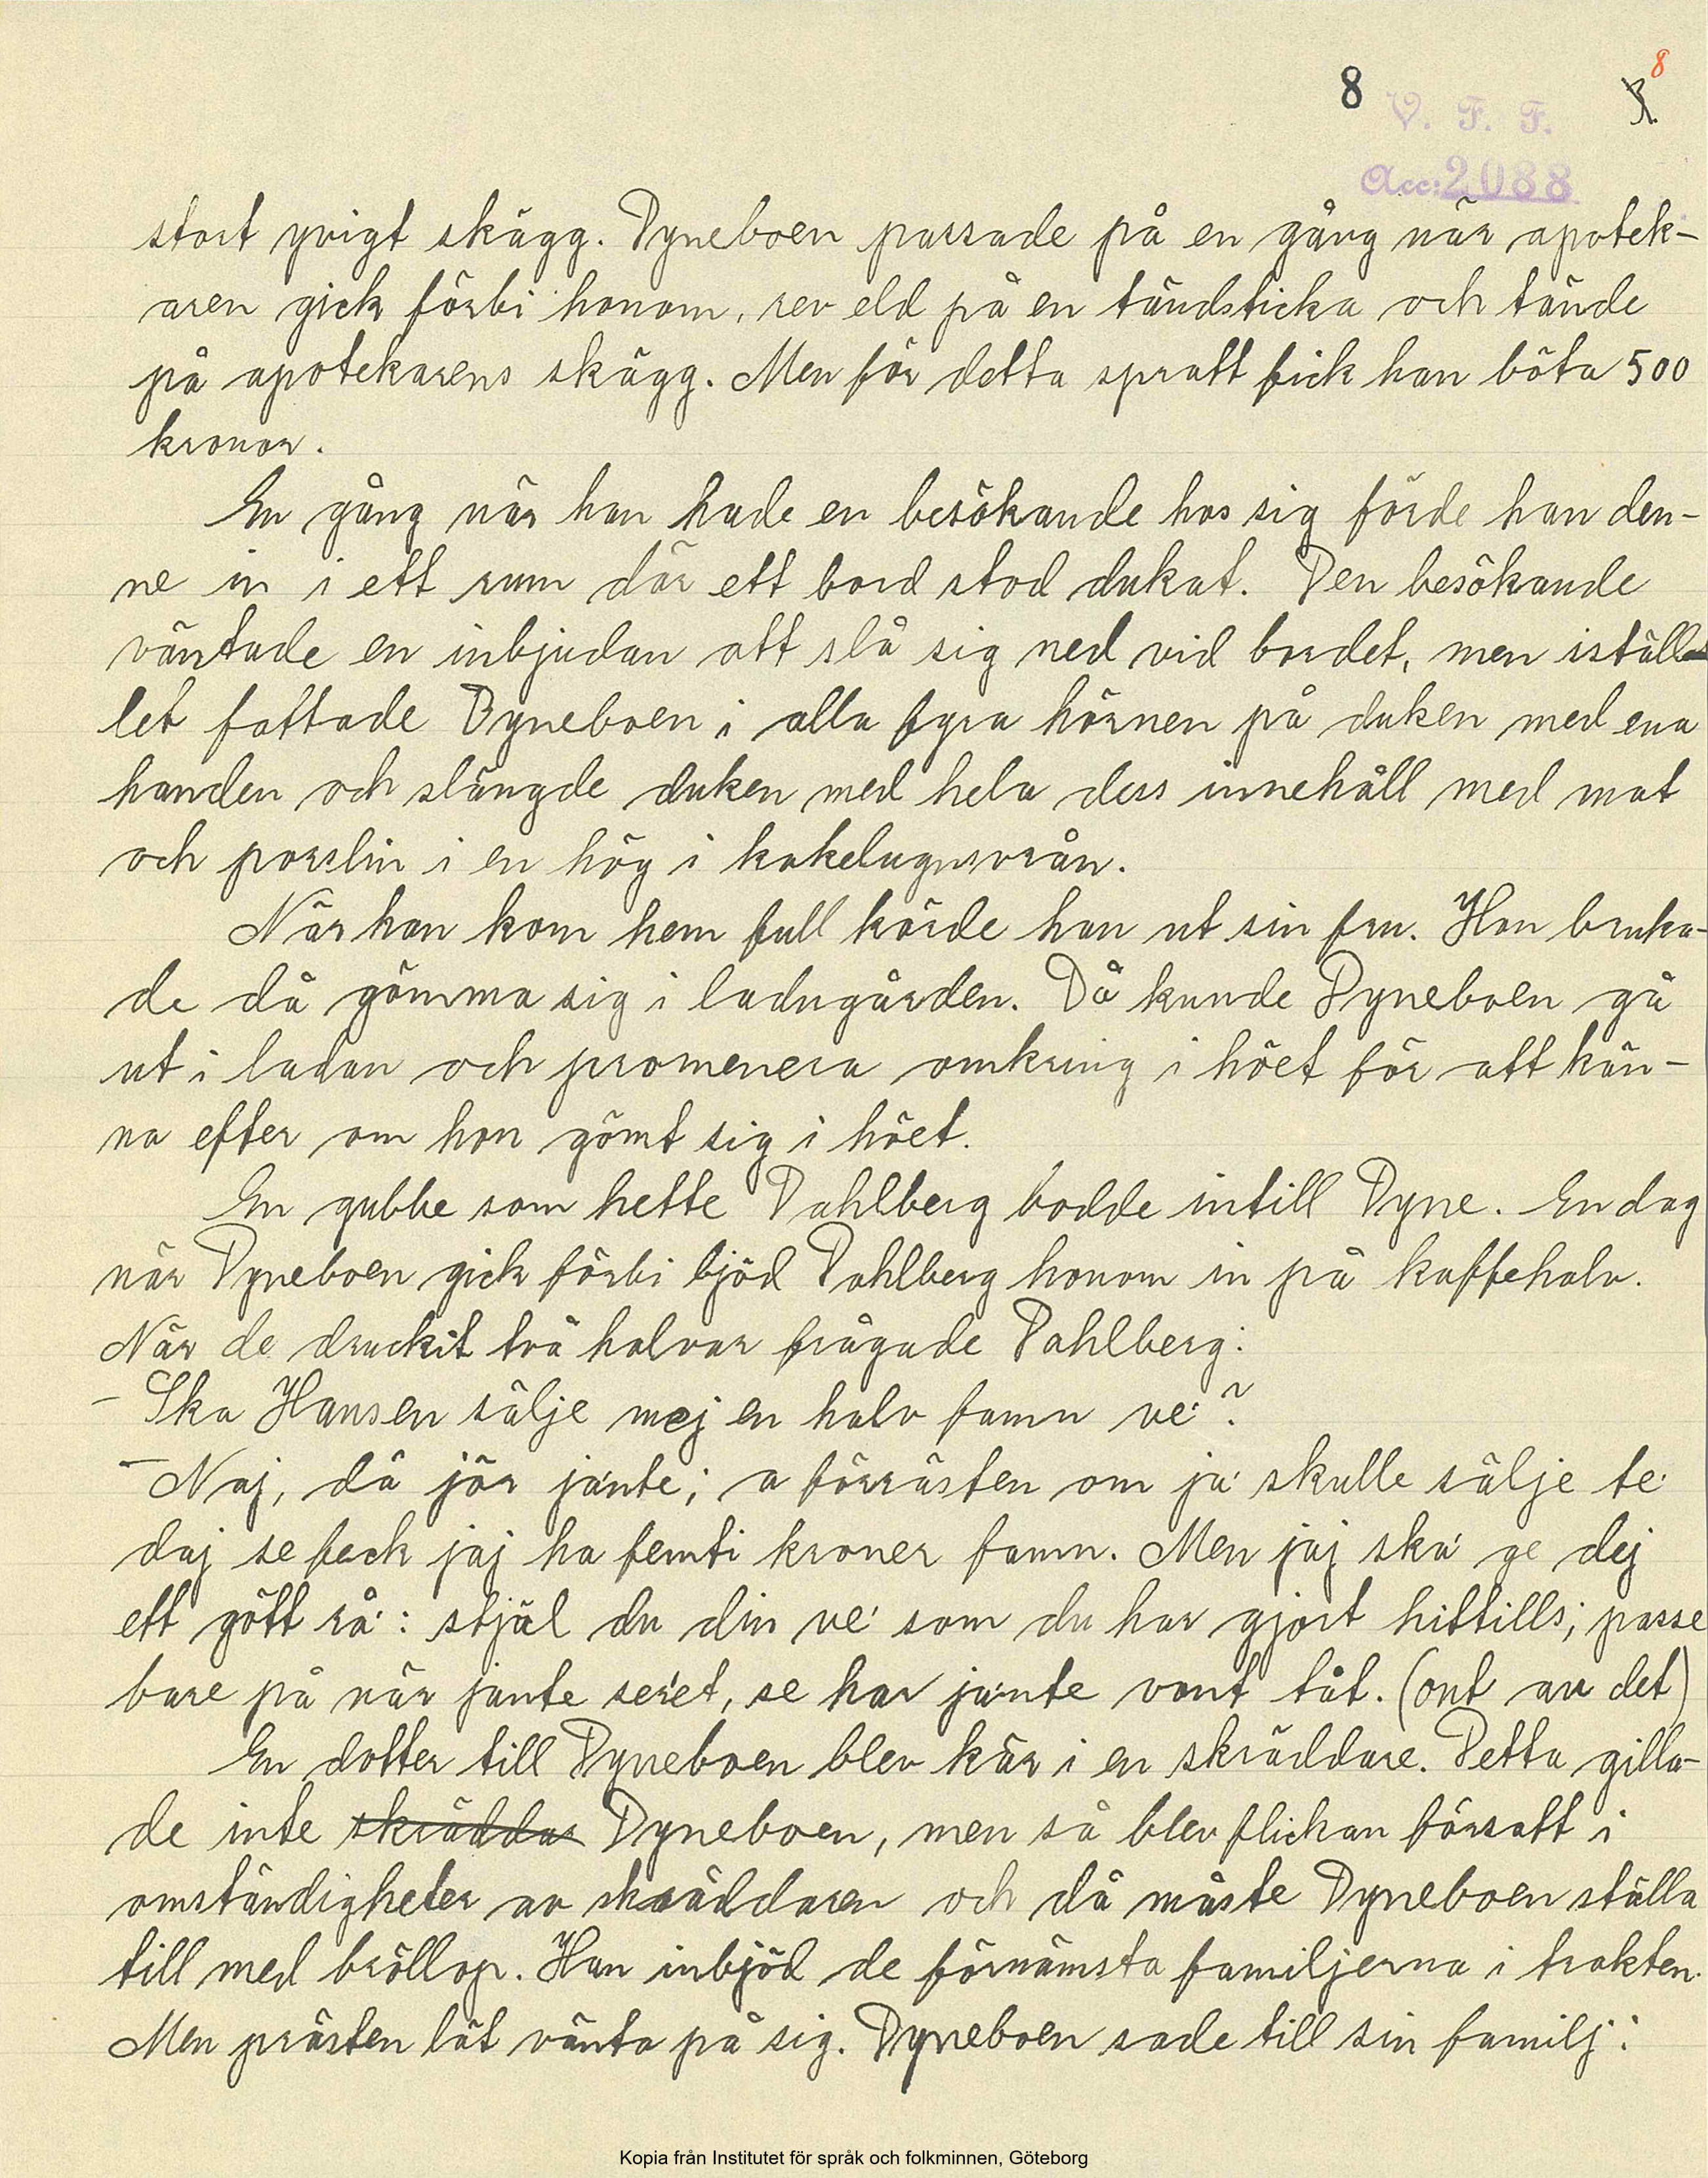 8
8
3.
V. F. F.
Acc: 2088
stort yvigt skägg. Dyneboen passade på en gång när apotek-
aren gick förbi honom, rev eld på en tändsticka och tände
på apotekarens skägg. Men för detta spratt fick han böta 500
kronor.
En gång när han hade en besökande hos sig förde han den-
ne in i ett rum där ett bord stod dukat. Den besökande
väntade en inbjudan att slå sig ned vid bordet, men iställ
let fattade Dyneboen i alla fyra hörnen på duken med ena
handen och slängde duken med hela dess innehåll med mat
och porslin i en hög i kakelugnsvrån.
När han kom hem full körde han ut sin fru. Hon bruka-
de då gömma sig i ladugården. Då kunde Dyneboen gå
ut i ladan och promenera omkring i höet för att kän-
na efter om hon gömt sig i höet.
En gubbe som hette Dahlberg bodde intill Dyne. En dag
när Dyneboen gick förbi bjöd Dahlberg honom in på kaffehalv.
När de druckit två halvar frågade Dahlberg:
- Ska Hansen sälje mej en halv famn ve'?
- Naj, då jör ja'nte; a förrästen om ja' skulle sälje te'
daj se feck jaj ha femti kroner famn. Men jaj ska' ge dej
ett gött rå': stjäl du din ve' som du har gjort hittills; passe
bare på när jante ser'et, se har ja'nte vont tåt. (ont av det)
En dotter till Dyneboen blev kär i en skräddare. Detta gilla-
de inte skräddar Dyneboen, men så blev flickan försatt i
omständigheter av skräddaren och då måste Dyneboen ställa
till med bröllop. Han inbjöd de förnämsta familjerna i trakten.
Men prästen lät vänta på sig. Dyneboen sade till sin familj:
Kopia från Institutet för språk och folkminnen, Göteborg